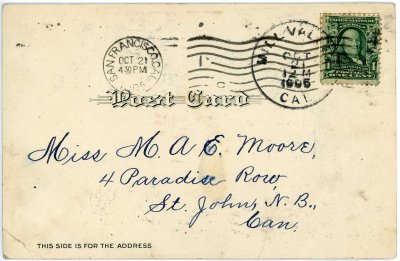 SAN FRANCISCO, CAL.
OCT 21
430 PM
MILL VALLEY
OCT
21
12 M
1906
CAL.
Post Card
Miss M. A E. Moore,
4 Paradise Row,
St. John, N. B.,
Can.
THIS SIDE IS FOR THE ADDRESS